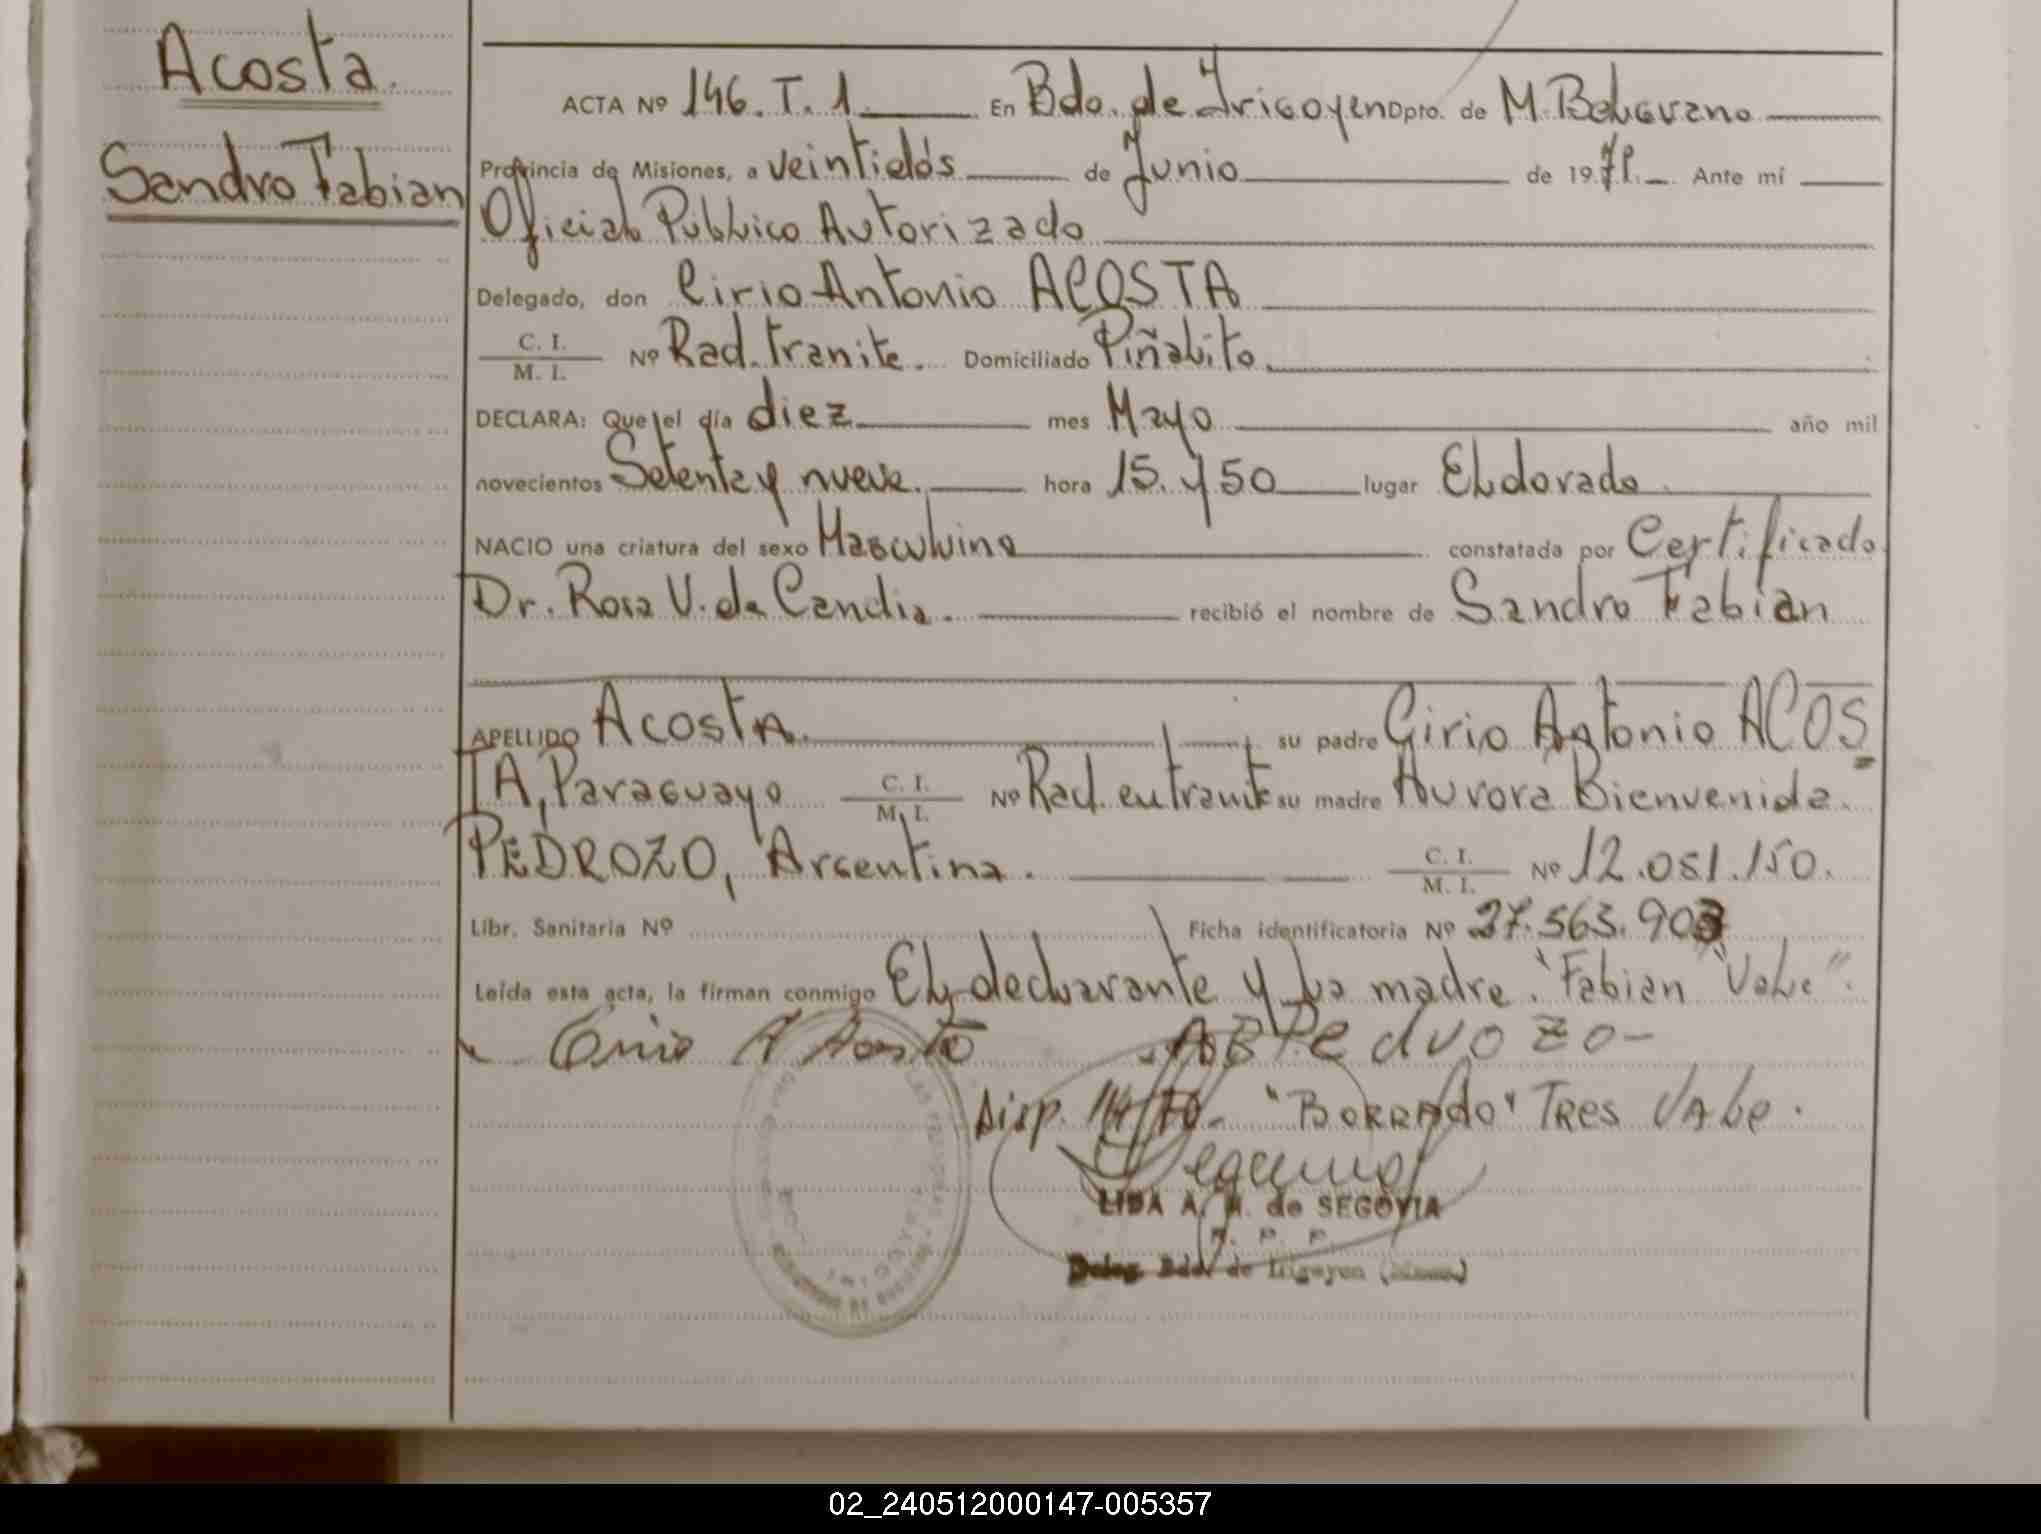 Acosta.
Sandro Fabian
ACTA Nº 146. T. 1. En Bdo. de Irigoyen Dpto. de M. Belgrano
Provincia de Misiones, a veintidós de Junio de 1979. Ante mí
Oficial Público Autorizado
Delegado, don Cirio Antonio ACOSTA
C. I.
M. I. Nº Rad. tramite. Domiciliado Piñalito.
DECLARA: Que el día diez mes Mayo año mil
novecientos Setenta y nueve. hora 15. y 50 lugar Eldorado.
NACIO una criatura del sexo Masculino constatada por Certificado
Dr. Rosa V. de Candia. recibió el nombre de Sandro Fabian
APELLIDO Acosta. su padre Cirio Antonio ACOS
TA, Paraguayo C. I. M. I. Nº Rad. en tramite su madre Aurora Bienvenida
PEDROZO, Argentina. C. I. M. I. Nº 12.081.150.
Libr. Sanitaria Nº Ficha identificatoria Nº 27.563.903
Leída esta acta, la firman conmigo El declarante y la madre. "Fabian" Vale".
Cirio A Acosta ABPedrozo-
Disp. 114/70. "BORRADO" TRES VALE.
LIDA A. M. de SEGOVIA
Deleg. Bdo. de Irigoyen
02_240512000147-005357